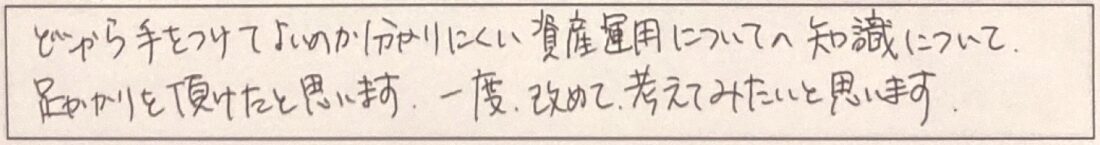 どこから手をつけてよいのか分かりにくい資産運用についての知識について、
足がかりを頂けたと思います。一度、改めて、考えてみたいと思います。